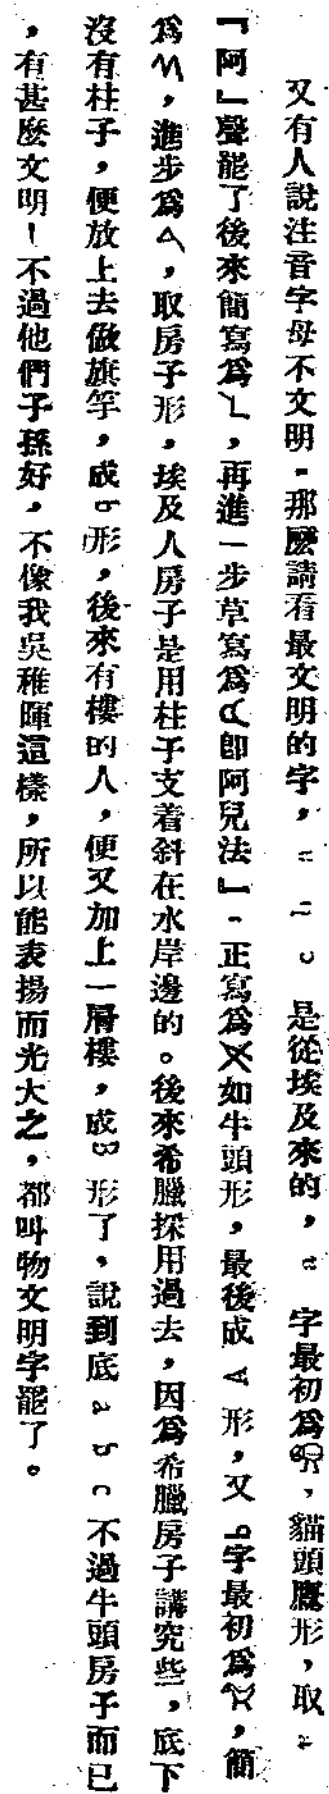 又有人說注音字母不文明。那麼請看最文明的字，a b c 是從埃及來的，a 字最初為，貓頭鷹形，取a
『阿』聲罷了後來簡寫為，再進一步草寫為α即阿兒法』，正寫為如牛頭形，最後成 A 形，又 b字最初為，簡
為，進步為，取房子形，埃及人房子是用柱子支着斜在水岸邊的。後來希臘採用過去，因為希臘房子講究些，底下
沒有柱子，便放上去做旗竿，成b形，後來有樓的人，便又加上一層樓，成B形了，說到底 a b c 不過牛頭房子而已
，有甚麼文明！不過他們子孫好，不像我吳稚暉這樣，所以能表揚而光大之，都叫物文明字罷了。